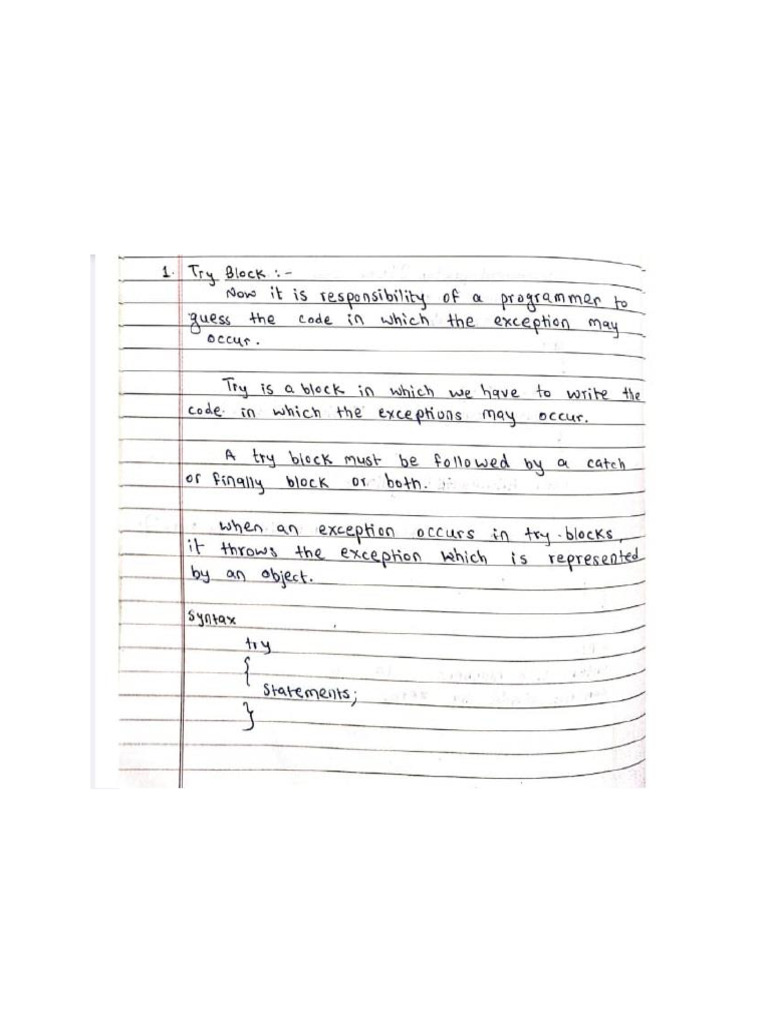 1. Try Block :-
Now it is responsibility of a programmer to
guess the code in which the exception may
occur.
Try is a block in which we have to write the
code in which the exceptions may occur.
A try block must be followed by a catch
or finally block or both.
when an exception occurs in try blocks,
it throws the exception which is represented
by an object.
Syntax
try
{
Statements;
}